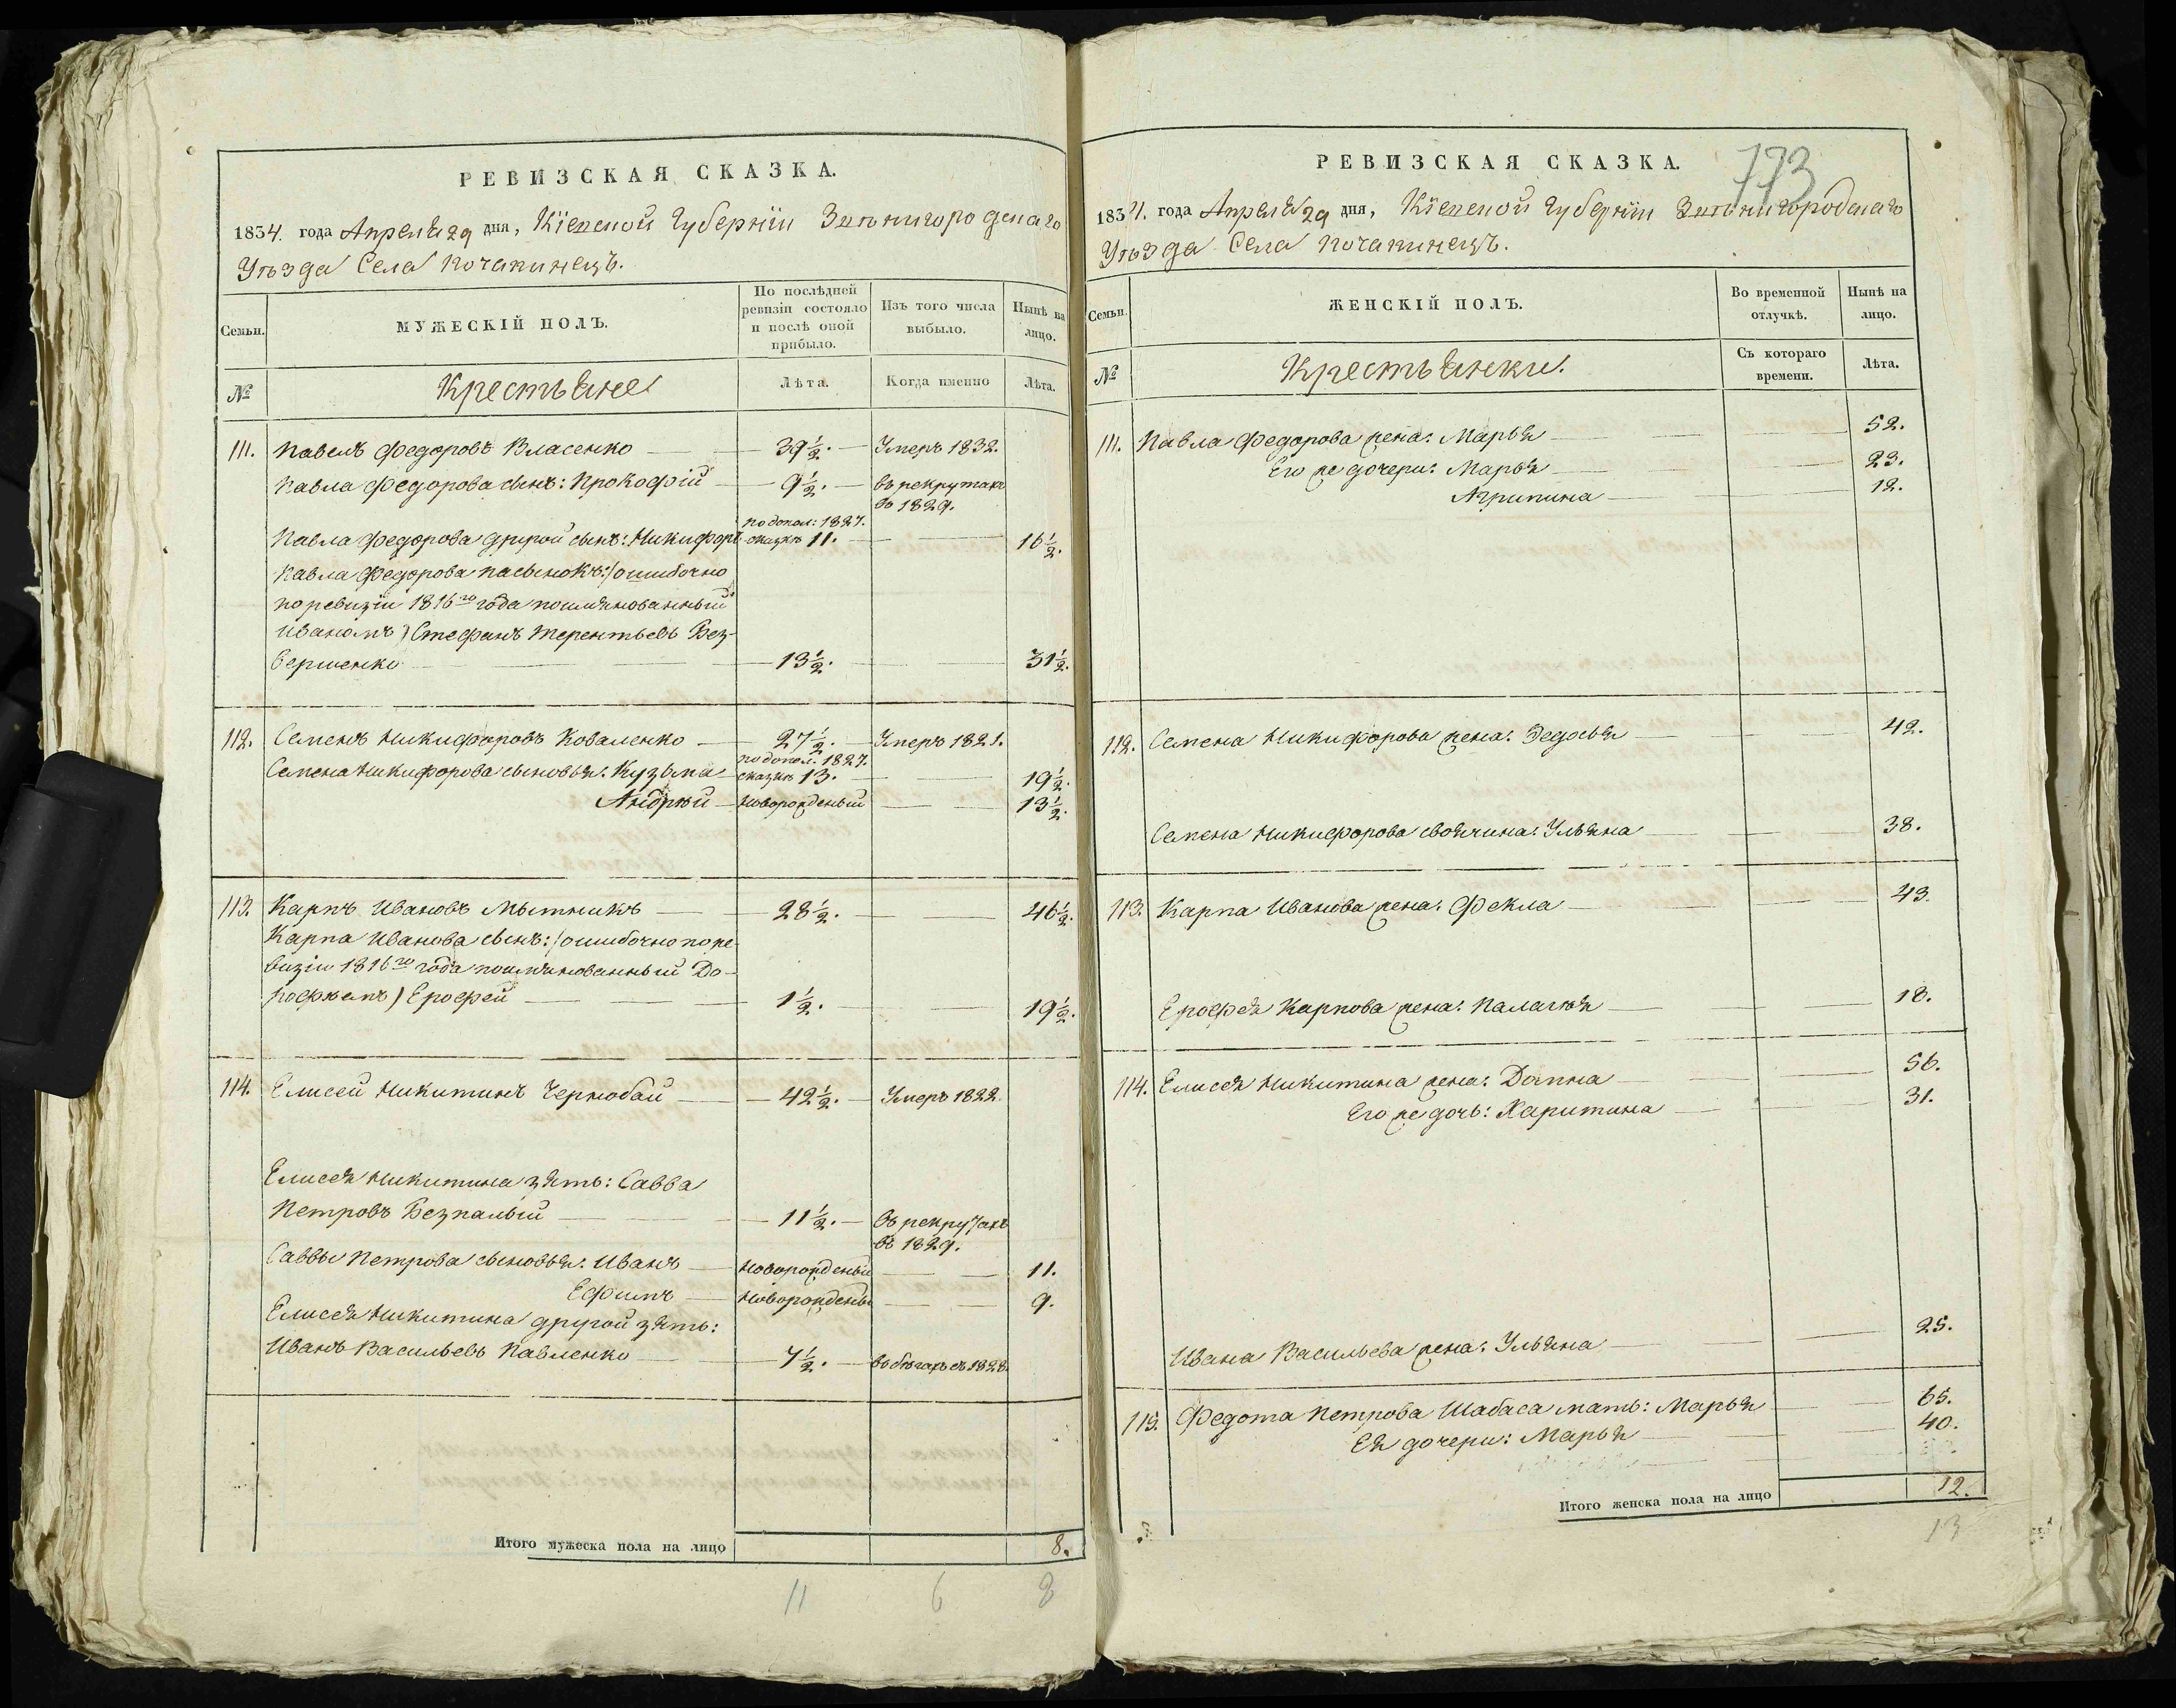 РЕВИЗСКАЯ СКАЗКА.
1834. года Апреля 29 дня, Кіевской Губерніи Звѣнигородскаго
Уѣзда Села Почапинецъ.
Семьи.
МУЖЕСКІЙ ПОЛЪ.
По послѣдней
ревизіи состояло
и послѣ оной
прибыло.
Изъ того числа
выбыло.
Нынѣ на
лицо.
№
Крестьяне
Лѣта.
Когда именно
Лѣта.
111. Павелъ Федоровъ Власенко 39½. Умеръ 1832.
Павла Федорова сынъ: Прокофій 9½. въ рекрутахъ
въ 1829.
по допол: 1827.
Павла Федорова другой сынъ: Никифоръ сказкѣ 11. 16½.
Павла Федорова пасынокъ: (ошибочно
по ревизіи 1816го года поимянованный
Иваномъ) Стефанъ Терентьевъ Без-
вершенко 13½. 31½.
112. Семенъ Никифоровъ Коваленко 27½. Умеръ 1821.
по допол. 1827.
Семена Никифорова сыновья: Кузьма сказкѣ 13. 19½.
Андрѣй новорожденый 13½.
113. Карпъ Ивановъ Мытникъ 28½. 46½.
Карпа Иванова сынъ: (ошибочно по ре-
визіи 1816го года поимянованный До-
рофѣемъ) Ерофей 1½. 19½.
114. Елисей Никитинъ Чернобай 42½. Умеръ 1822.
Елисея Никитина зять: Савва
Петровъ Безпалый 11½. въ рекрутахъ
въ 1829.
Саввы Петрова сыновья: Иванъ новорожденый 11.
Ефимъ новорожденый 9.
Елисея Никитина другой зять:
Иванъ Васильевъ Павленко 7½. въ бѣгахъ съ 1828.
Итого мужеска пола на лицо 8.
11 6 8
РЕВИЗСКАЯ СКАЗКА.
773
1834. года Апреля 29 дня, Кіевской Губерніи Звѣнигородскаго
Уѣзда Села Почапинецъ.
Семьи.
ЖЕНСКІЙ ПОЛЪ.
Во временной
отлучкѣ.
Нынѣ на
лицо.
№
Крестьянки.
Съ котораго
времени.
Лѣта.
111. Павла Федорова жена: Марья 52.
Его же дочери: Марья 23.
Агрипина 12.
112. Семена Никифорова жена: Федосья 42.
Семена Никифорова своячина: Ульяна 38.
113. Карпа Иванова жена: Фекла 43.
Ерофея Карпова жена: Палагея 18.
114. Елисея Никитина жена: Домна 56.
Его же дочь: Харитина 31.
Ивана Васильева жена: Ульяна 25.
115. Федота Петрова Шабаса мать: Марья 65.
Ея дочери: Марья 40.
Итого женска пола на лицо 12.
13